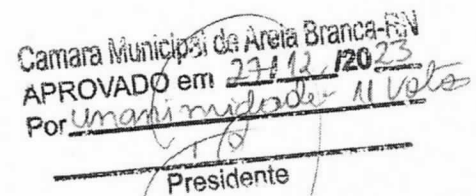 Camara Municipal de Areia Branca-RN
APROVADO em 27/12/2023
Por unanimidade 11 Voto
Presidente